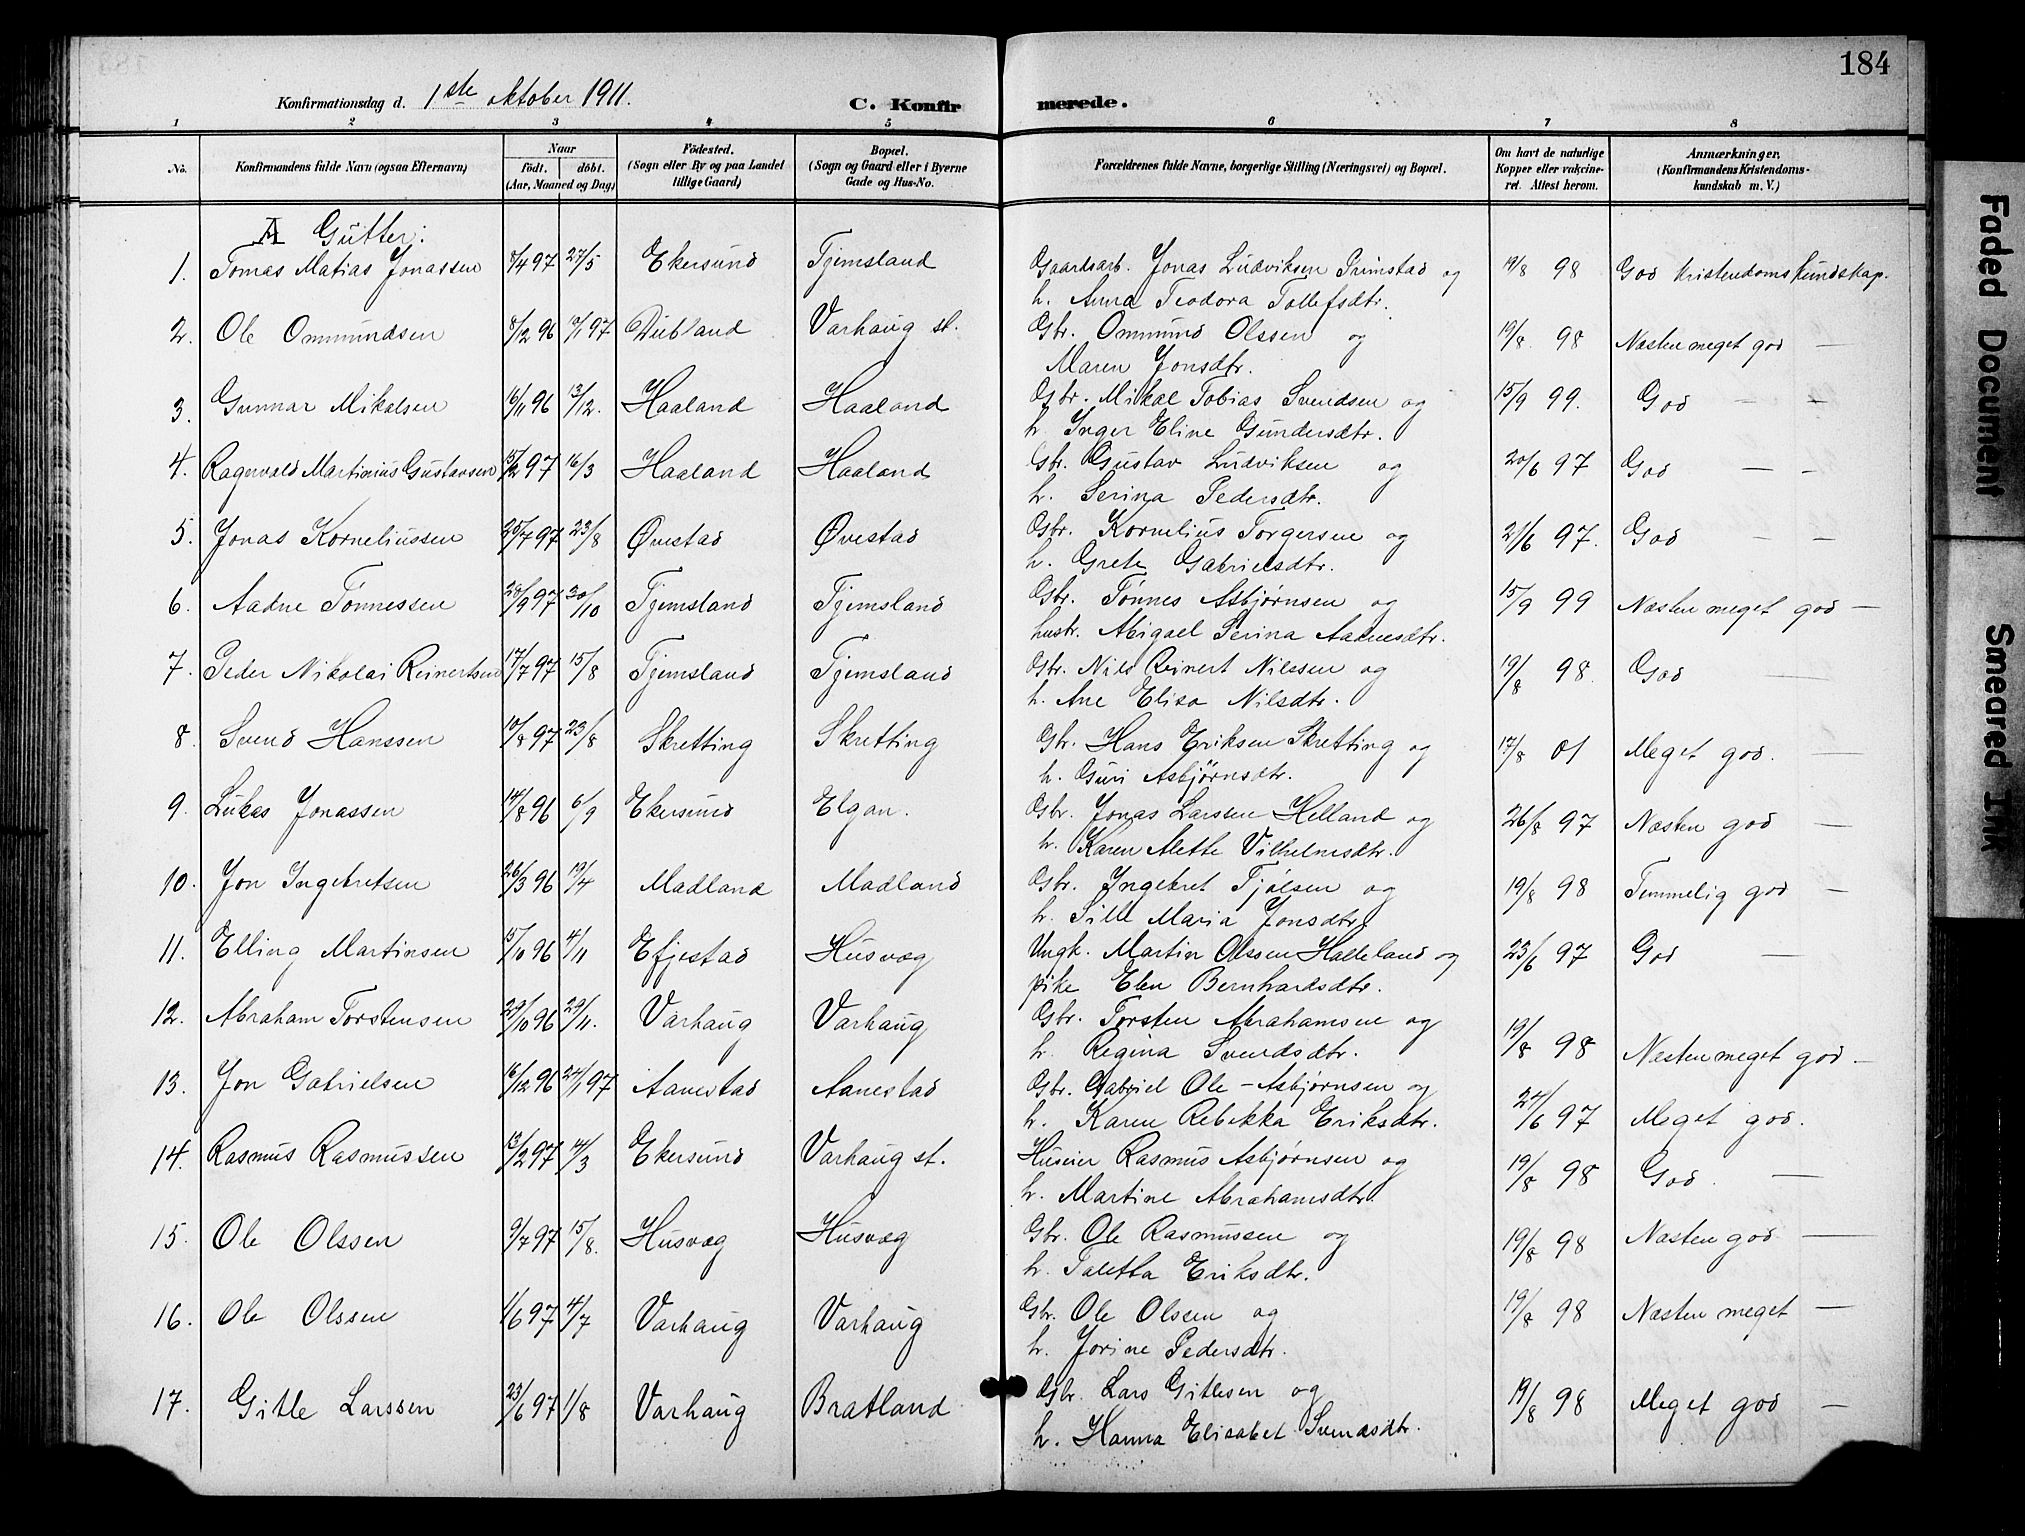 184
Konfirmationsdag d. 1ste oktober 1911. C. Konfirmerede.
1 2 3 4 5 6 7 8
No. Konfirmandens fulde Navn (ogsaa Efternavn) Naar født. døbt. (Aar, Maaned og Dag) Fødested. (Sogn eller By og paa Landet tillige Gaard) Bopæl. (Sogn og Gaard eller i Byerne Gade og Hus-No. Forældrenes fulde Navne, borgerlige Stilling (Næringsvei) og Bopæl. Om havt de naturlige Kopper eller vakcineret. Attest herom. Anmærkninger. (Konfirmandens Kristendomskundskab m. V.)
A Gutter:
1. Tomas Matias Jonassen 8/4 97 27/5 Ekersund Tjemsland Gaardsarb. Jonas Ludviksen Grimstad og 19/8 98 God Kristendomskundskap.
h. Anna Teodora Tollefsdtr.
2. Ole Ommundsen 8/12 96 17/1 97 Dubland Varhaug st. Gbr. Ommund Olssen og 19/8. 98 Næsten meget god —
Maren Jonsdtr.
3. Gunnar Mikalsen 16/11 96 13/12. Haaland Haaland Gbr. Mikal Tobias Svendsen og 15/9 99. God — -
h. Inger Eline Gundersdtr.
4. Ragnvald Martinius Gustavsen 15/2 97 16/3 Haaland Haaland Gbr. Gustav Ludviksen og 20/6 97 God — -
h. Serina Pedersdtr.
5. Jonas Korneliussen 25/7 97 23/8 Øvestad Øvestad Gbr. Kornelius Torgersen og 21/6 97. God — -
h. Grete Gabrielsdtr.
6. Aadne Tønnessen 20/9 97 30/10 Tjemsland Tjemsland Gbr. Tønnes Asbjørnsen og 15/9 99 Næsten meget god —
hustr. Abigael Serina Aadnesdtr.
7. Peder Nikolai Reinertsen 17/7 97 15/8 Tjemsland Tjemsland Gbr. Nils Reinert Nilssen og 19/8 98. God —
h. Ane Elisa Nilsdtr.
8. Svend Hanssen 10/8 97 23/8 Skretting Skretting Gbr. Hans Eriksen Skretting og 17/8 01 Meget god. —
h. Guri Asbjörnsdtr.
9. Lukas Jonassen 14/8 96 6/9 Ekersund Elgan. Gbr. Jonas Larsen Helland og 26/8 97 Næsten god —
h. Karen Alette Vilhelmsdtr.
10. Jon Ingebretsen 26/3 96 19/4 Madland Madland Gbr. Ingebret Tjølsen og 19/8 98 Temmelig god —
h. Sille Maria Jonsdtr.
11. Elling Martinsen 15/10 96 4/11 Efjestad Husvæg Ungk. Martin Olssen Halleland og 23/6 97 God —
pike Elen Bernhardsdtr.
12. Abraham Torstensen 29/10 96 29/11. Varhaug Varhaug Gbr. Torsten Abrahamsen og 19/8 98 Næsten meget god —
h. Regina Svendsdtr.
13. Jon Gabrielsen 16/12 96 24/1 97 Aanestad Aanestad Gbr. Gabriel Ole - Asbjørnsen og 24/6 97 Meget god.
h. Karen Rebekka Eriksdtr.
14. Rasmus Rasmussen 13/2 97 14/3 Ekersund Varhaug st. Huseier Rasmus Asbjørnsen og 19/8 98 God. —
h. Martine Abrahamsdtr.
15. Ole Olssen 9/7 97 15/8. Husvæg Husvæg Gbr. Ole Rasmussen og 19/8 98 Næsten god —
h. Taletta Eriksdtr.
16. Ole Olssen 1/6 97 4/7 Varhaug Varhaug Gbr. Ole Olssen og 19/8 98 Næsten meget —
h. Jorine Pedersdtr.
17. Gitle Larssen 23/6 97 1/8 Varhaug Bratland Gbr. Lars Gitlesen og 19/8 98 Meget god —
h. Hanna Elisabet Svendsdtr.
Faded Document
Smeared Ink